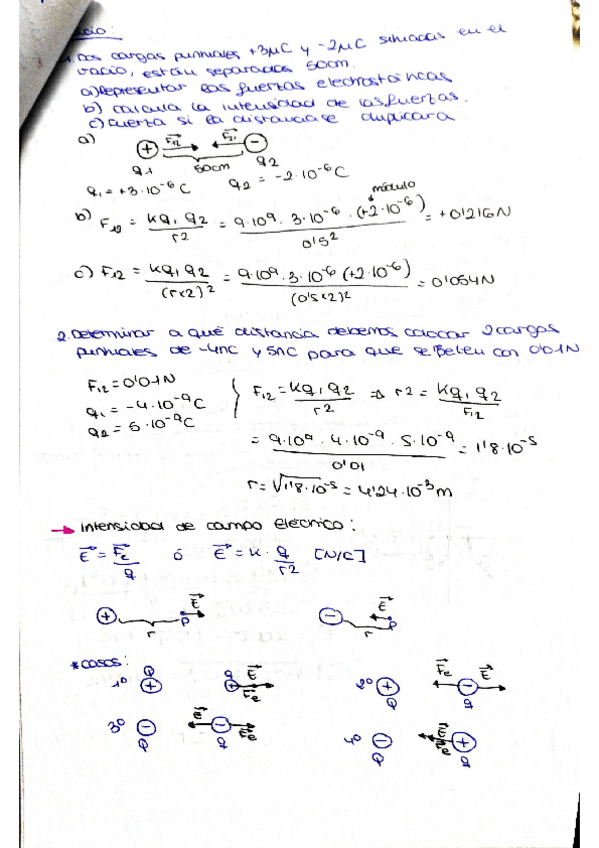 cicio:
1. Dos cargas puntuales +3μC y -2μC situadas en el
vacio, están separadas 50cm.
a) Representar las fuerzas electrostáticas
b) Calcula la intensidad de las fuerzas.
c) Fuerza si la distancia se duplicara
a)
+ F₁₂ F₂₁ -
q₁ 50cm q₂
q₁ = +3·10⁻⁶ C q₂ = -2·10⁻⁶ C
módulo
b) F₁₂ = kq₁q₂/r² = 9·10⁹·3·10⁻⁶·(+2·10⁻⁶)/0'5² = +0'216N
c) F₁₂ = kq₁q₂/(r×2)² = 9·10⁹·3·10⁻⁶(+2·10⁻⁶)/(0'5×2)² = 0'054N
2. Determinar a qué distancia debemos colocar 2 cargas
puntuales de -4nC y 5nC para que se con 0'01N
F₁₂ = 0'01N
q₁ = -4·10⁻⁹C
q₂ = 5·10⁻⁹C
F₁₂ = kq₁q₂/r² ⇒ r² = kq₁q₂/F₁₂
= 9·10⁹·4·10⁻⁹·5·10⁻⁹/0'01 = 1'8·10⁻⁵
r = √1'8·10⁻⁵ = 4'24·10⁻³m
→ Intensidad de campo eléctrico:
E = Fe/q ó E = K·q/r² [N/C]
+ r P E - r P E
*casos:
1º Q + q + E Fe 2º + Q Fe - q E
3º - Q E - q Fe 4º - Q E Fe + q